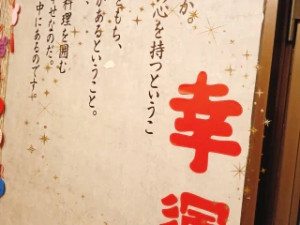 幸運
か。
の心を持つというこ
ともち、
があるということ。
、
料理を囲む
せなのだ。
中にあるのです。